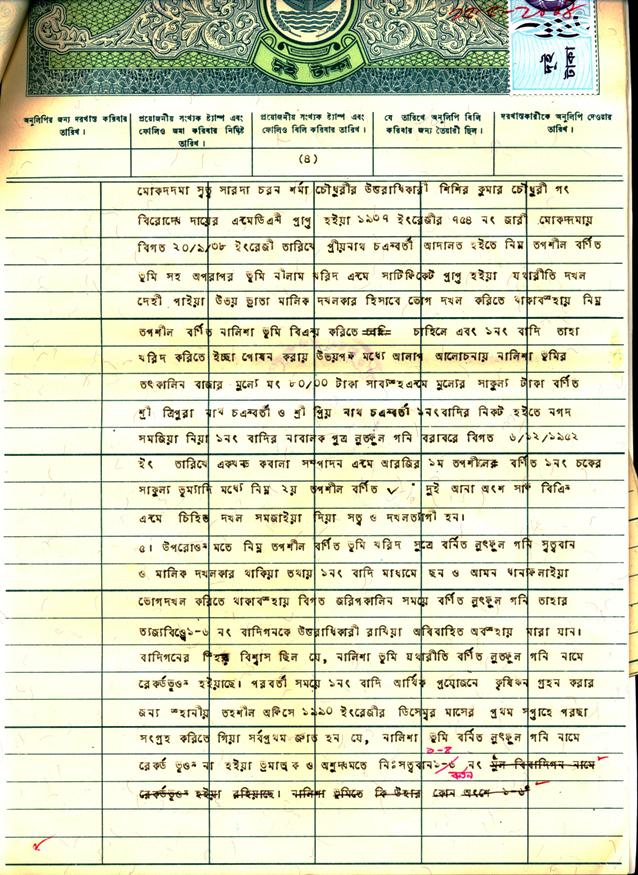 দুই টাকা
দুই টাকা
অনুলিপির জন্য দরখাস্ত করিবার তারিখ।
প্রয়োজনীয় সংখ্যক ষ্ট্যাম্প এবং ফোলিও জমা করিবার নির্দ্দিষ্ট তারিখ।
প্রয়োজনীয় সংখ্যক ষ্ট্যাম্প এবং ফোলিও বিলি করিবার তারিখ।
যে তারিখে অনুলিপি বিলি করিবার জন্য তৈয়ারী ছিল।
দরখাস্তকারীকে অনুলিপি দেওয়ার তারিখ।
(৪)
মোকদদমা সুত্র সারদা চরন শর্মা চৌধুরীর উত্তরাধিকারী শিশির কুমার চৌধুরী গং
বিরোদ্ধে দায়ের এনমেডিএনী প্রাপ্ত হইয়া ১৯৩৭ ইংরেজীর ৭৫৪ নং জারী মোকদদমায়
বিগত ২০/৯/৩৮ ইংরেজী তারিখে প্রীয়নাথ চএন্বর্তী আদালত হইতে নিম্ন তপশীল বর্ণিত
ভুমি সহ অপরাপর ভুমি নীলাম খরিদ এনমে সার্টিফিকেট প্রাপ্ত হইয়া যথারীতি দখল
দেহী পাইয়া উভয় ভ্রাতা মালিক দখলকার হিসাবে ভোগ দখল করিতে থাকাবস্হায় নিম্ন
তপশীল বর্ণিত নালিশা ভুমি বিএন্য় করিতে চাহিলে এবং ১নং বাদি তাহা
খরিদ করিতে ইচ্ছা পোষন করায় উভয়পক্ষ মধ্যে আলাপ আলোচনায় নালিশা ভুমির
তৎকালিন বাজার মুল্যে মং ৮০/০০ টাকা সাবস্হএনমে মুল্যের সাকুল্য টাকা বর্ণিত
শ্রী ত্রিপুরা নাথ চএন্বর্তী ও শ্রী প্রিয় নাথ চএন্বর্তী ১নংবাদির নিকট হইতে নগদ
সমজিয়া নিয়া ১নং বাদির নাবালক পুত্র লুতফুল গনি বরাবরে বিগত ৬/১২/১৯৫২
ইং তারিখে একখন্ড কবালা সম্পাদন এনমে আরজির ১ম তপশীলের বর্ণিত ১নং চকের
সাকুল্য ভুম্যাদি মধ্যে নিম্ন ২য় তপশীল বর্ণিত ✓ দুই আনা অংশ সাফ বিত্রিন
এনমে চিহ্নিত দখল সমজাইয়া দিয়া সত্ব ও দখলত্যাগী হন।
৫। উপরোওন মতে নিম্ন তপশীল বর্ণিত ভুমি খরিদ সুত্রে বর্নিত লুৎফুল গনি সুত্ববান
ও মালিক দখলকার থাকিয়া তথায় ১নং বাদি মাধ্যমে ছন ও আমন ধানফলাইয়া
ভোগদখল করিতে থাকাবস্হায় বিগত জরিপকালিন সময়ে বর্ণিত লুৎফুল গনি তাহার
ত্যজ্যবিত্তে১-৬ নং বাদিগনকে উত্তরাধিকারী রাখিয়া অবিবাহিত অবস্হায় মারা যান।
বাদিগনের স্হির বিশ্বাস ছিল যে, নালিশা ভুমি যথারীতি বর্ণিত লুতফুল গনি নামে
রেকর্ডভুওন হইয়াছে। পরবর্তী সময়ে ১নং বাদি আর্থিক প্রয়োজনে কৃষিঋন গ্রহন করার
জন্য স্হানীয় তহশীল অফিসে ১৯৯০ ইংরেজীর ডিসেম্বর মাসের প্রথম সপ্তাহে পরছা
সংগ্রহ করিতে গিয়া সর্বপ্রথম জ্ঞাত হন যে, নালিশা ভুমি বর্নিত লুৎফুল গনি নামে
রেকর্ড ভুওন না হইয়া ভ্রমাত্মক ও অশুদ্ধমতে নিঃসত্ববান১-৬ নং মুল বিবাদিগন নামে
রেকর্ডভুওন হইয়া রহিয়াছে। নালিশা ভুমিতে কি উহার কোন অংশে ১-৬নং